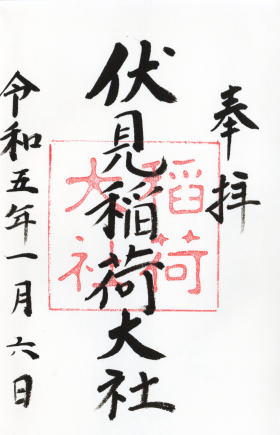 奉拝
伏見稲荷大社
稲荷
大社
令和五年一月六日